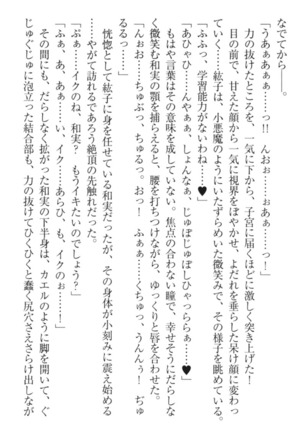 なでてから――。
「うあぁぁぁ――っ!! んおぉ……おぁぁ――っ!」
力の抜けたところを、一気に下から、子宮に届くほどに激しく突き上げた!
目の前で、甘えた顔から一気に視界をぼやかせ、よだれを垂らした呆け顔に変わっていく……紘子は、小悪魔のようにいたずらめいた微笑みで、その様子を眺めている。
「ふふっ、学習能力がないわね……♥」
「あひゃひ……んやぁぁ、しょんなぁ、じゅぽじゅぽしひゃらぁぁ……♥」
もはや言葉はその意味を成していない。焦点の合わない瞳で、幸せそうにだらしなく微笑む和実の顎を捕らえると、腰を打ちつけながら、ゆっくりと唇を合わせた。
「んぉお……ちゅぷっ、ちゅるっ。おっ! ふぁぁ……くちゅっ、うんんぅ! ぢゅるるっ……」
恍惚として紘子に身を任せている和実だったが、その身体が小刻みに震え始める
……やがて訪れるであろう絶頂の先触れだった。
「ぷぁ……イクのね、和実? もうイキたいのでしょう?」
「ふぁ、あぁ、ぁぁ……い、イク……あらひ、も、イクのぉ……!」
その間にも、だらしなく拡がった和実の下半身は、カエルのように脚を開いて、ぐじゅぐじゅに泡立った結合部も、力の抜けてひくひくと蠢く尻穴さえさらけ出しなが